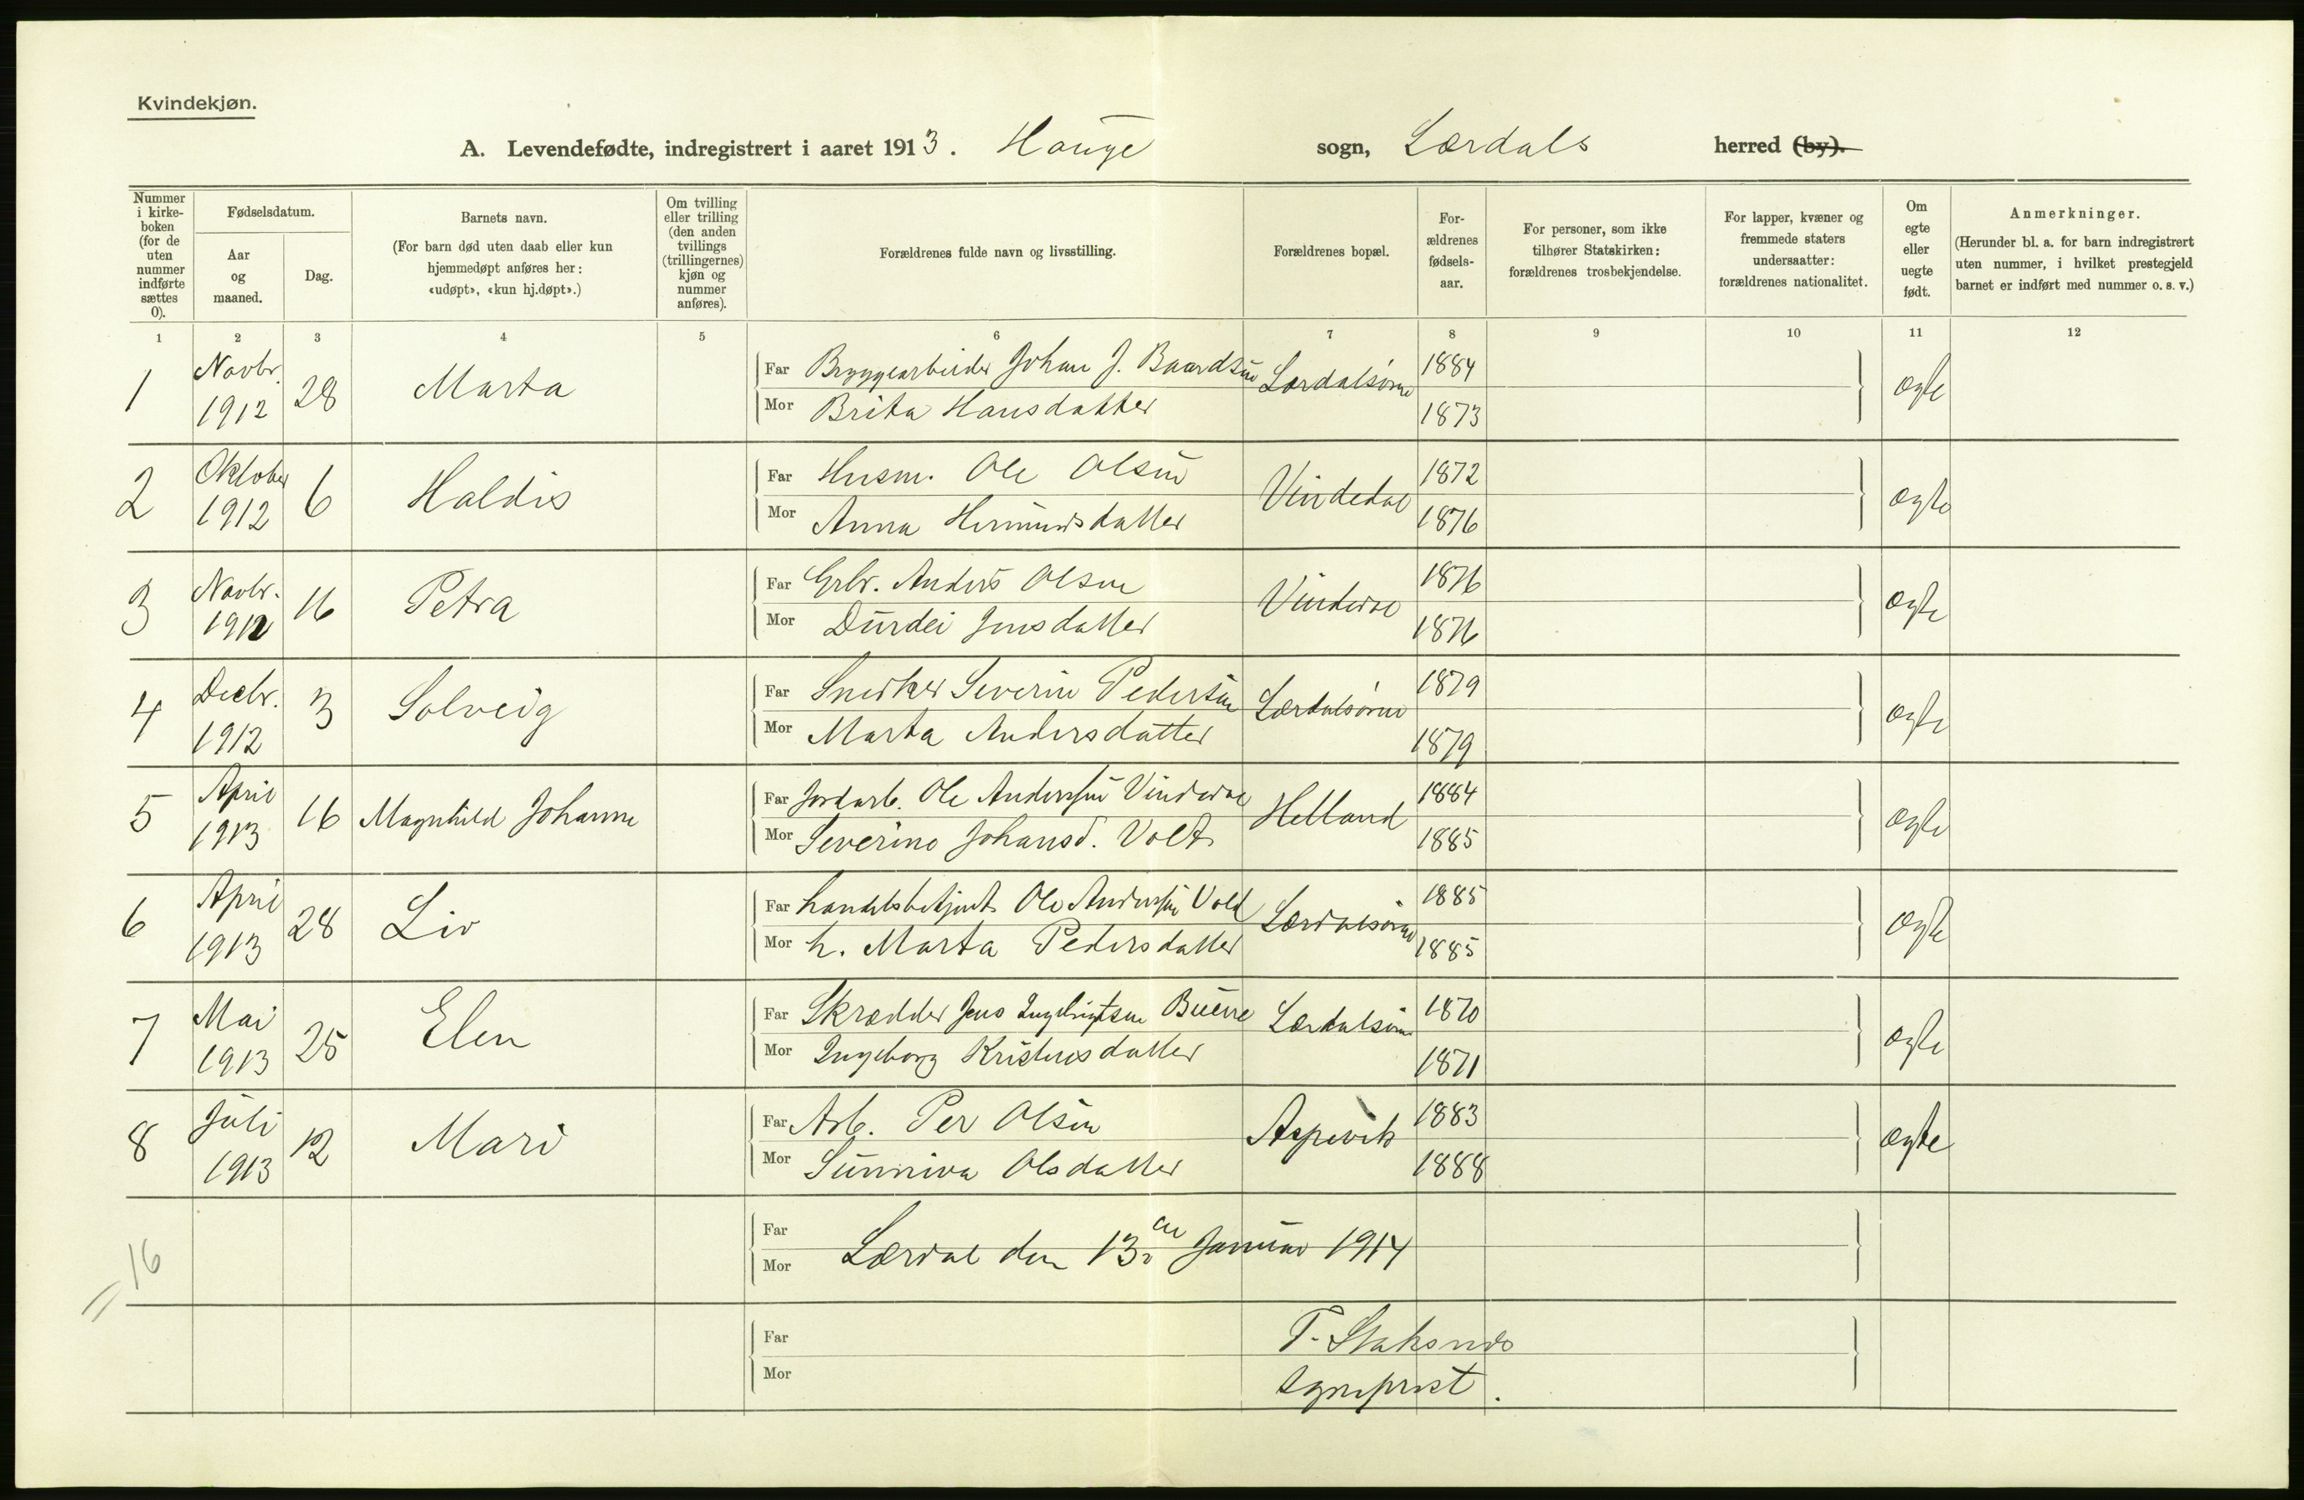 Kvindekjøn.
A. Levendefødte, indregistrert i aaret 1913. Hauge sogn, Lærdals herred (by).
Nummer i kirkeboken (for de uten nummer indførte sættes 0).
Fødselsdatum.
Aar og maaned.
Dag.
Barnets navn.
(For barn død uten daab eller kun hjemmedøpt anføres her: «udøpt», «kun hj.døpt».)
Om tvilling eller trilling (den anden tvillings (trillingernes) kjøn og nummer anføres).
Forældrenes fulde navn og livsstilling.
Forældrenes bopæl.
Forældrenes fødselsaar.
For personer, som ikke tilhører Statskirken: forældrenes trosbekjendelse.
For lapper, kvæner og fremmede staters undersaatter: forældrenes nationalitet.
Om egte eller uegte født.
Anmerkninger.
(Herunder bl. a. for barn indregistrert uten nummer, i hvilket prestegjeld barnet er indført med nummer o. s. v.)
1 2 3 4 5 6 7 8 9 10 11 12
1 Novbr. 1912 28 Marta Far Bryggearbeider Johan J. Baardsen Lærdalsøren 1884 ægte
Mor Brita Hansdatter 1873
2 Oktober 1912 6 Haldis Far Husm. Ole Olsen Vindedal 1872 ægte
Mor Anna Hermundsdatter 1876
3 Novbr. 1912 16 Petra Far Grbr. Anders Olsen Vindedal 1876 ægte
Mor Durdei Jensdatter 1876
4 Decbr. 1912 3 Solveig Far Snedker Severin Pedersen Lærdalsøren 1879 ægte
Mor Marta Andersdatter 1879
5 April 1913 16 Magnhild Johanne Far Jordarb. Ole Anderssen Vindedal Helland 1884 ægte
Mor Severine Johansd. Vold 1885
6 April 1913 28 Liv Far handelsbetjent Ole Anderssen Vold Lærdalsøren 1885 ægte
Mor h. Marta Pedersdatter 1885
7 Mai 1913 25 Elen Far Skrædder Jens Ingebrigtsen Lærdalsøren 1870 ægte
Mor Ingeborg Kristensdatter 1871
8 Juli 1913 12 Mari Far Arb. Per Olsen Aspevik 1883 ægte
Mor Sunniva Olsdatter 1888
16
Far
Mor
Lærdal den 13de Januar 1914
Far
Mor
sogneprest.